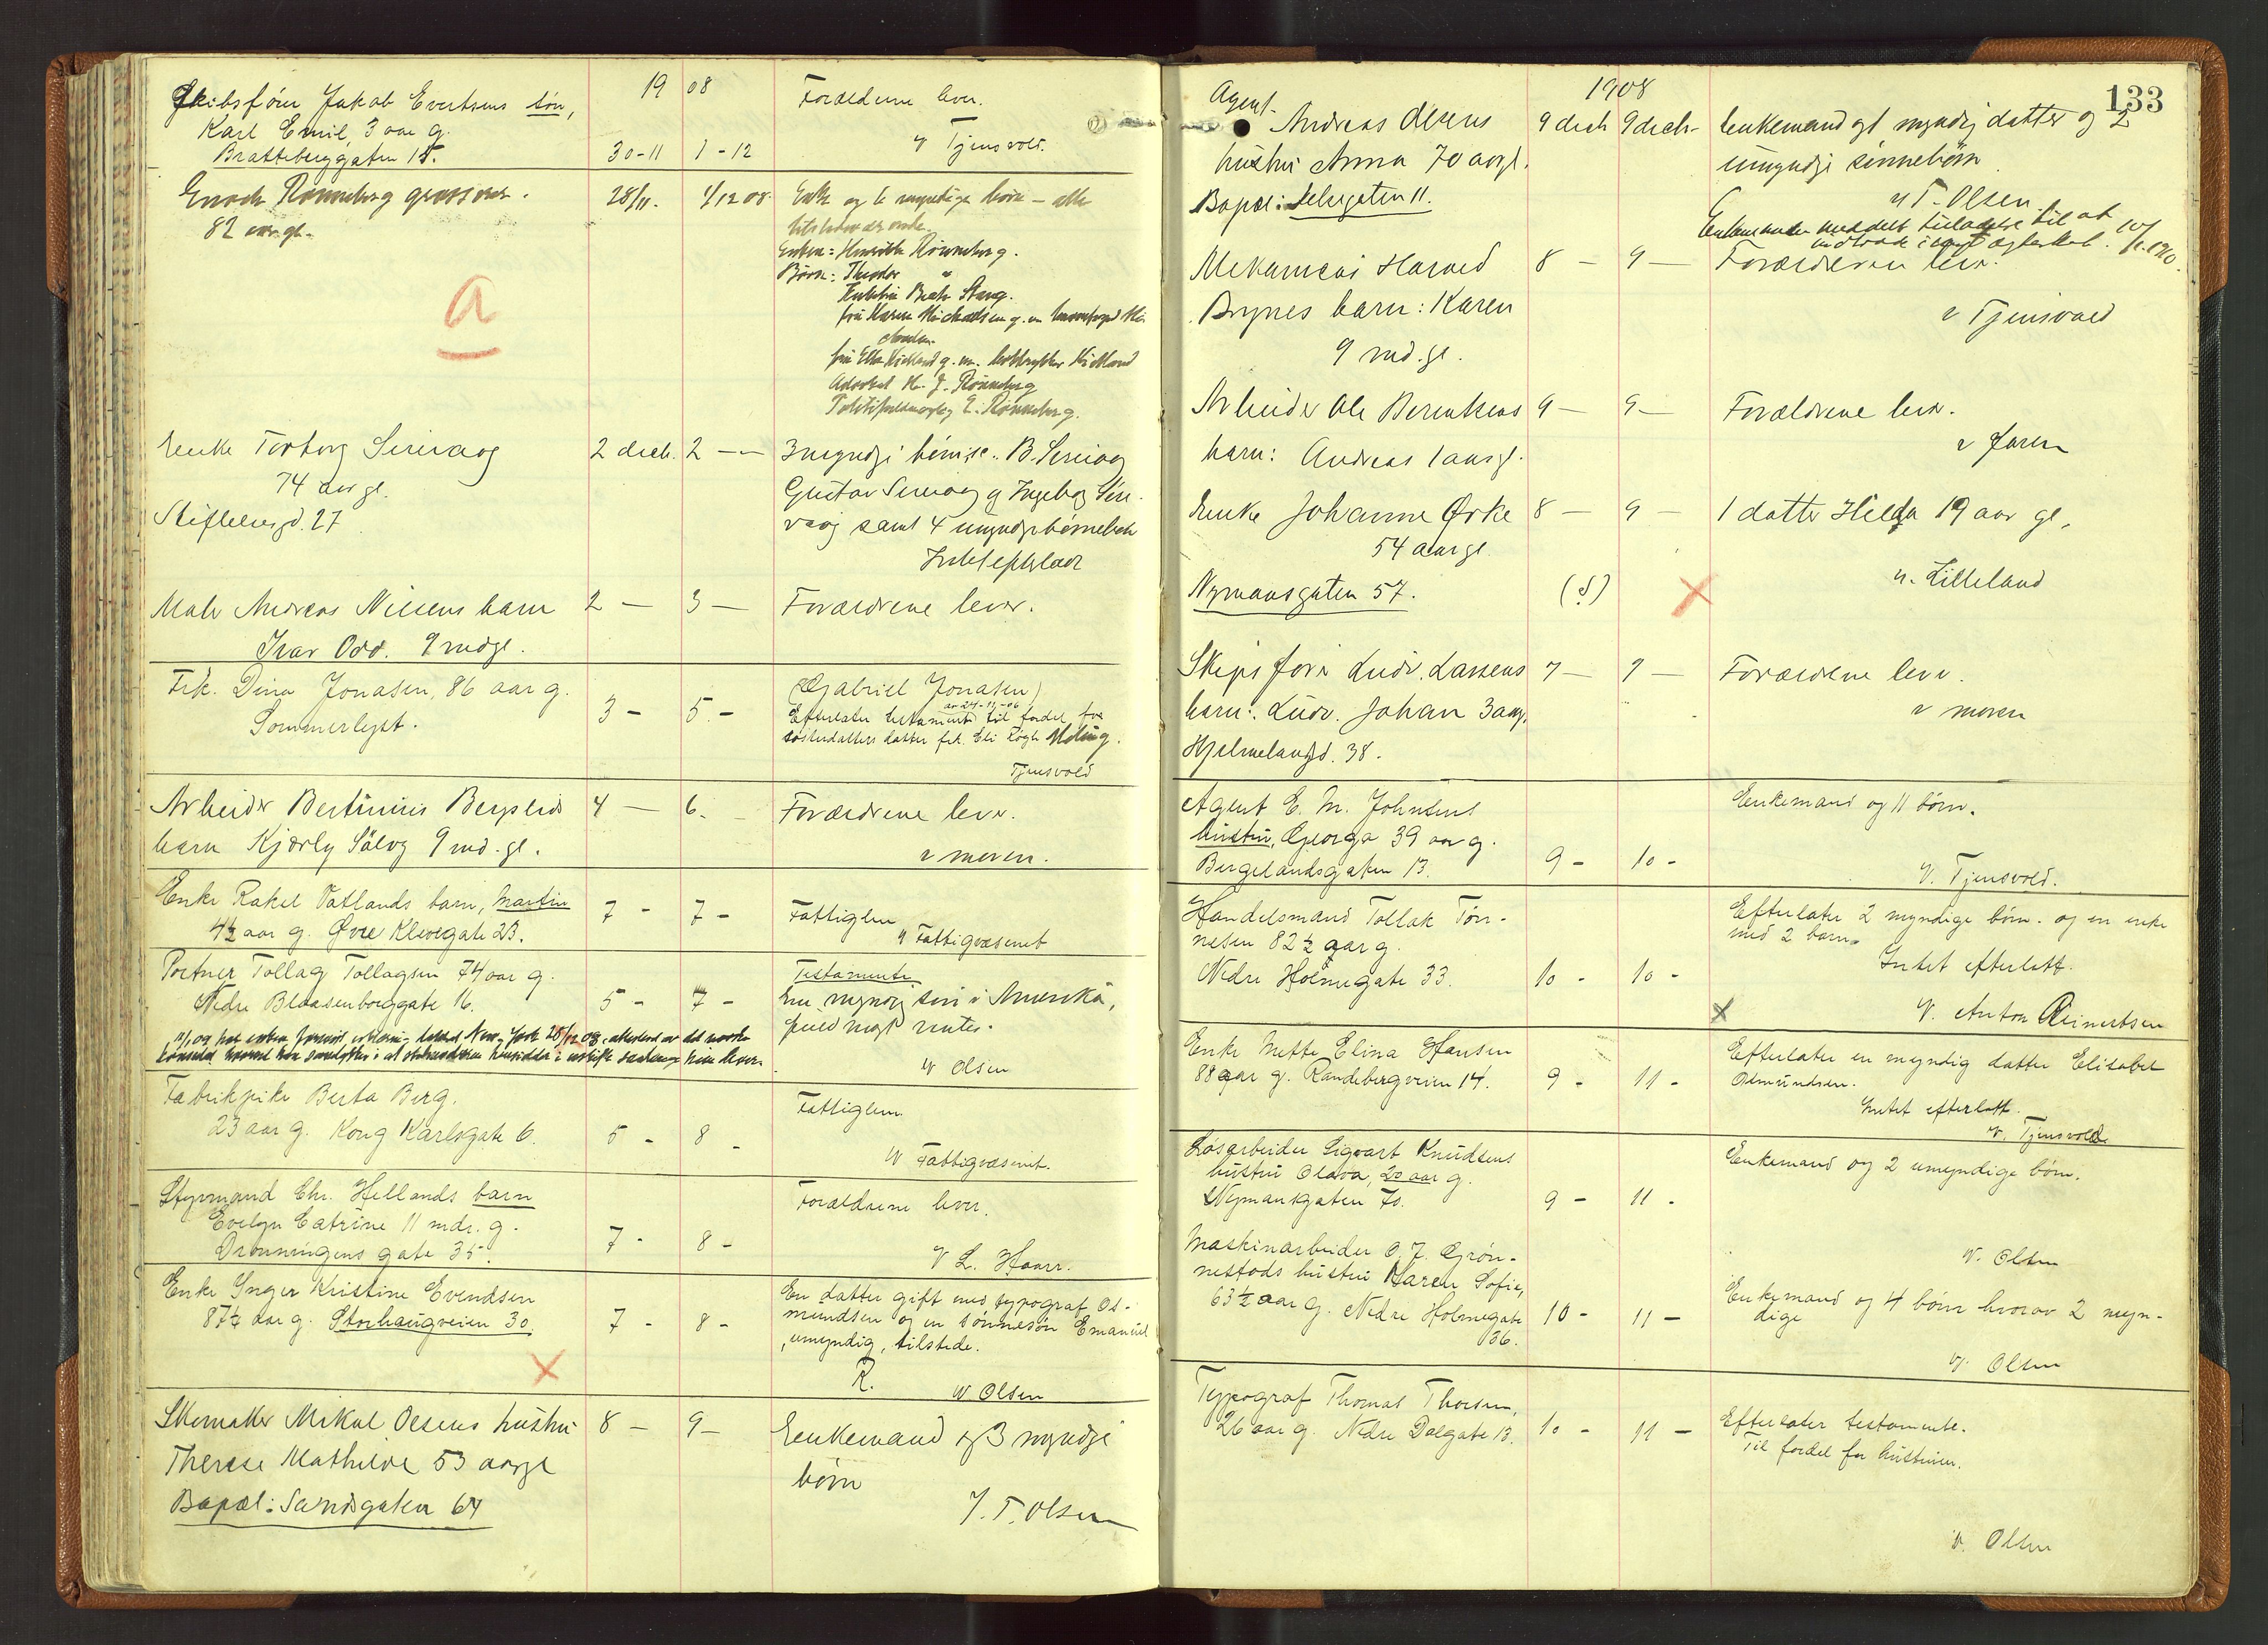 19 08
Skibsfører Jakob Evertsens søn,
Karl Emil, 3 aar g.
Bratteberggaten 15.
30-11 1-12
Forældrene lever.
v Tjensvold.
Enoch Rønneberg grosserer.
82 aar gl.
28/11. 1/12 08.
Enke og 6 myndige børn - alle
tilstedeværende.
Enken: Henrikke Rønneberg.
Børn: Theodor "
fru Karen Michaelsen g. m.
fru Elka Kielland g. m. Kielland
Advokat H. J. Rønneberg
E. Rønneberg.
a
Enke Torborg Sirevaag
74 aar gl.
2 decb. 2 —
3 myndige børn: B. Sirevaag
Gustav Sirevaag og Ingeborg Sire-
vaag samt 4 umyndige børnebørn
Intet efterladt
Maler Andreas Nilsens barn
Ivar Odd. 9 md gl.
2 — 3 —
Forældrene lever.
Frk. Dina Jonasen, 86 aar g.
Sommerlyst.
3 - 5. -
(Gabriel Jonasen)
av 24-11-06
Efterlater testamente til fordel for
søsterdatters datter frk. Eli Røgh
Tjensvold
Arbeider Bertinius Bergslids
barn Kjærly Sølvg 9 md. gl.
4 — 6.
Forældrene lever.
v moren.
Enke Rakel Vatlands barn, Martin
4½ aar g. Øvre Klevegate 23.
7 - 7 -
Fattiglem
v Fattigvæsenet
Portner Tollag Tollagsen 74 aar g.
Nedre Blaasenborggate 16.
5 - 7 -
Testamente
En myndig søn i Amerika,
v Olsen
Fabrikpike Berta Berg.
23 aar g. Kong Karlsgate 6.
5 - 8 -
Fattiglem
v Fattigvæsenet.
Styrmand Chr. Hellands barn
Evelyn Catrine 11 mdr. g.
Dronningens gate 35.
7 - 8 -
Forældrene lever.
v L. Haarr.
Enke Inger Kristine Evendsen
87½ aar g. Storhaugveien 30.
7 - 8 -
En datter gift med typograf Os-
mundsen og en sønnesøn Emanuel
, umyndig, tilstede.
R. v Olsen
Skomaker Mikal Olsens hustru
Therese Mathilde 53 aar gl
Bopæl: Sandsgaten 64
8 — 9 —
Enkemand og 3 myndige
børn
J. T. Olsen
133
1908
Agent
Andreas Olsens
hustru Anna 70 aar gl.
9 decb 9 decb -
Enkemand og 1 myndig datter og 2
umyndige sønnebørn
v T. Olsen.
Enkemanden meddelt tilladelse til at
indtræde i nyt ægteskab.
Mekanicus Harald
Brynes barn: Karen
9 md. gl.
8 — 9 —
Forældrene lever.
v Tjensvold
Arbeider Ole Berentsens
barn: Andreas 1 aar gl.
9 — 9 —
Forældrene lever.
v faren
Enke Johanne Ørke
54 aar gl.
Nymansgaten 57.
8 — 9 —
1 datter Hilda 19 aar gl.
v. Lilleland
Skipsfører Ludv. Larsens
barn: Ludv. Johan 3 aar g.
Hjelmelandsgd. 38.
7 — 9 —
Forældrene lever.
v moren
Agent E. M. Johnsens
hustru, Georga 39 aar g.
Bergelandsgaten 13.
9 - 10 -
Enkemand og 11 børn.
V. Tjensvold.
Handelsmand Tollak Tøn-
nesen 82½ aar g.
Nedre Holmegate 33.
10 - 10 -
Efterlater 2 myndige børn. og en enke
med 2 børn.
Intet efterlatt.
V. Anton Reinertsen
Enke Mette Elina Hansen
88 aar g. Randebergveien 14.
9 - 11 -
Efterlater en myndig datter Elisabet
Osmundsen.
Intet efterlatt.
v. Tjensvold
Løsarbeider Sigvart Knudsens
hustru Olava, 20 aar g.
Nymansgaten 70.
9 - 11 -
Enkemand og 2 umyndige børn.
v. Olsen
Maskinarbeider O. J. Grøn-
nestads hustru Karen Sofie,
63½ aar g. Nedre Holmegate
36.
10 - 11 -
Enkemand og 4 børn hvorav 2 myn-
dige
v. Olsen
Typograf Thomas Thorsen,
26 aar g. Nedre Dalgate 13.
10 - 11 -
Efterlater testamente.
Til fordel for hustruen.
v. Olsen